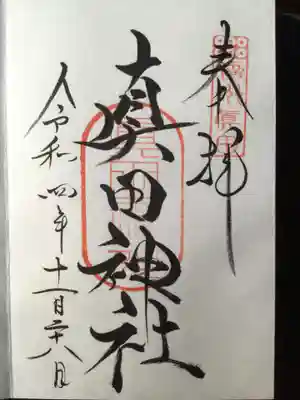 奉拝
眞田神社
令和四年十一月二十八日